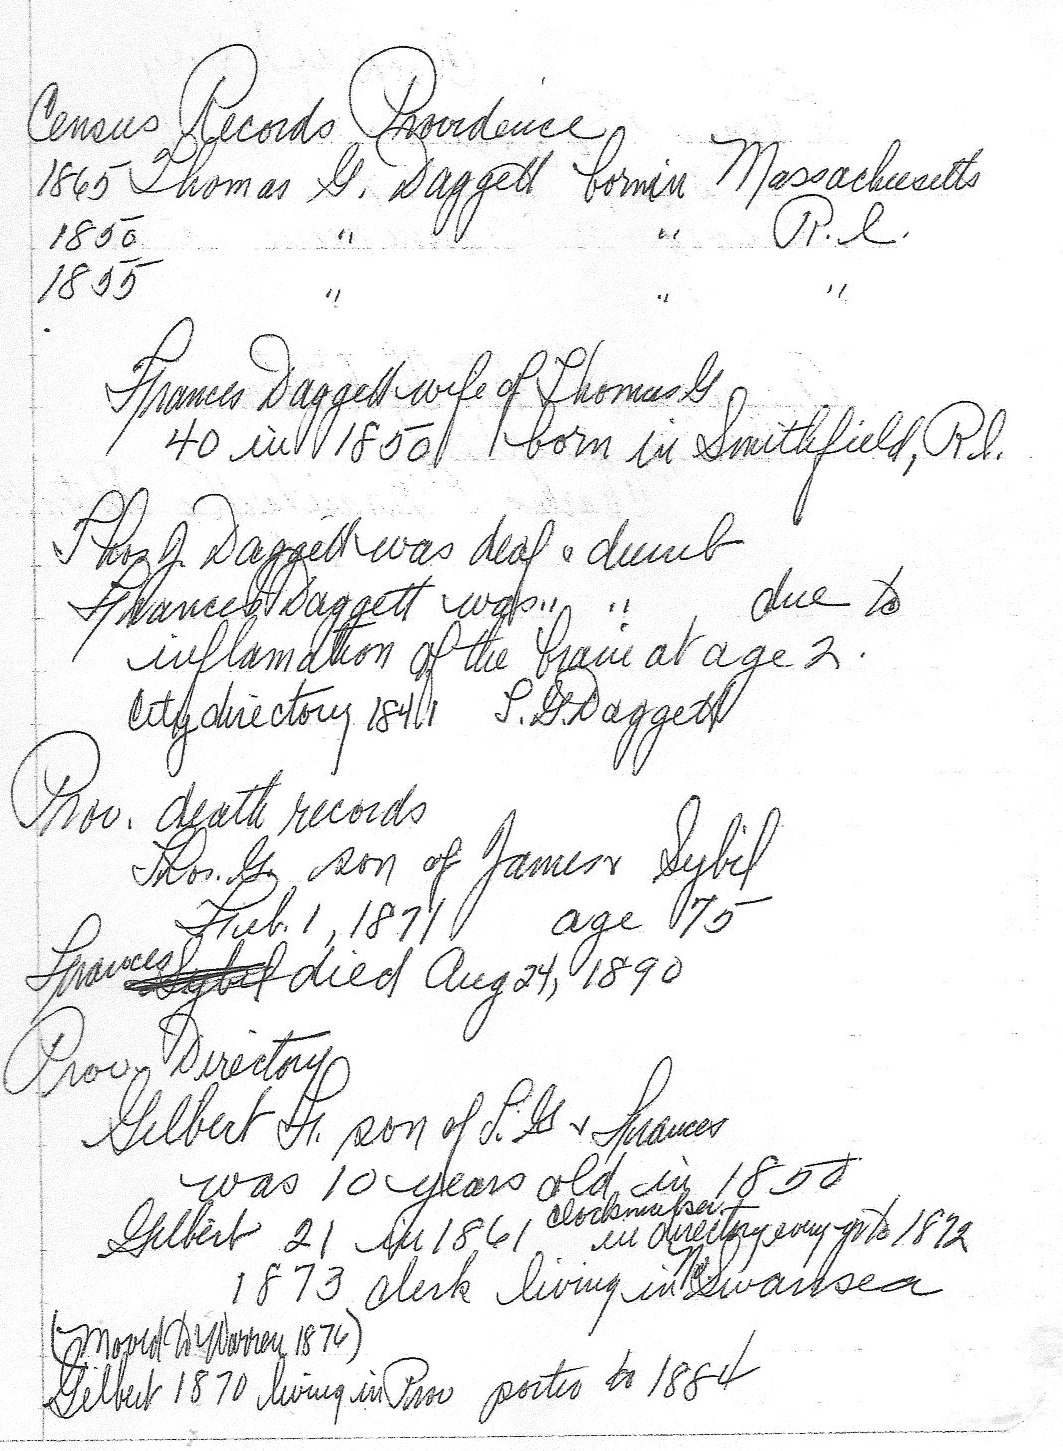 Census Records Providence
1865 Thomas G. Daggett born in Massachusetts
1850 " " R.I.
1855 " " "
Frances Daggett wife of Thomas G
40 in 1850 born in Smithfield, R.I.
Thos G. Daggett was deaf & dumb
Frances Daggett was " " due to
inflamation of the brain at age 2.
City directory 1841 T. G. Daggett
Prov. death records
Thos. G. son of James & Sybil
Feb. 1, 1871 age 75
Frances Sybil died Aug 24, 1890
Prov. Directory
Gilbert F. son of T. G & Frances
was 10 years old in 1850
Gilbert 21 in 1861 clockmaker in directory every yr to 1872
1873 clerk living in No. Swansea
(Moved to Warren 1876)
Gilbert 1870 living in Prov porter to 1884